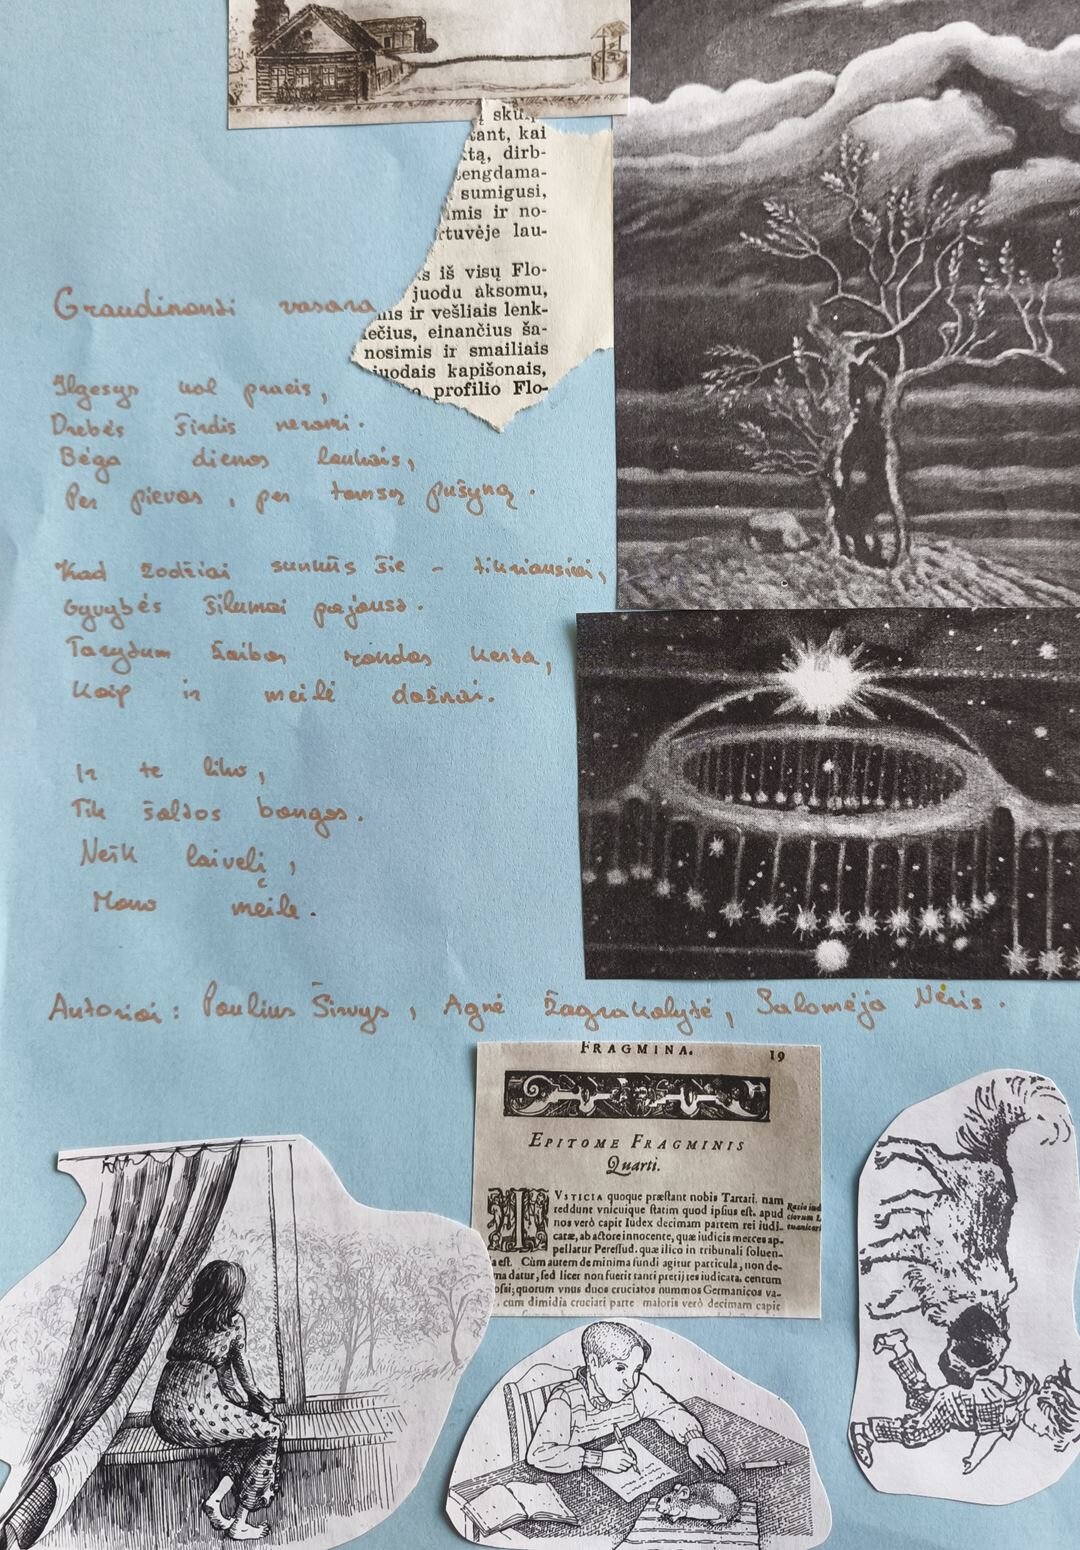 skur
tant, kai
ktą, dirb-
tengdama-
sumigusi,
imis ir no-
rtuvėje lau-
s iš visų Flo-
juodu aksomu,
nis ir vešliais lenk-
ečius, einančius ša-
nosimis ir smailiais
juodais kapišonais,
profilio Flo-
Graudinanti vasara
Ilgesys vėl praeis,
Drebės širdis nerami.
Bėga dienos laukais,
Per pievas, per tamsų pušyną.
Kad žodžiai sunkūs šie - tikriausiai,
Gyvybės šilumai pajausa.
Tarytum žaibas randas kerta,
Kaip ir meilė dažnai.
Ir te liko,
Tik šaltos bangos.
Nešk laivelį,
Mano meile.
Autoriai: Paulius Širvys, Agnė Žagrakalytė, Salomėja Nėris.
FRAGMINA. 19
EPITOME FRAGMINIS
Quarti.
IVSTICIA quoque præstant nobis Tartari. nam
reddunt vnicuique statim quod ipsius est. apud
nos verò capit Iudex decimam partem rei iudi-
catæ, ab actore innocente, quæ iudicis merces ap-
pellatur Peresud. quæ ilico in tribunali soluen-
a est. Cùm autem de minima fundi agitur particula, non de-
ma datur, sed licet non fuerit tanti pretij res iudicata, centum
ossi; quorum vnus duos cruciatos nummos Germanicos va-
cum dimidia cruciati parte maloris verò decimam capit
Ratio iud
ciorum L
tuanicorũ